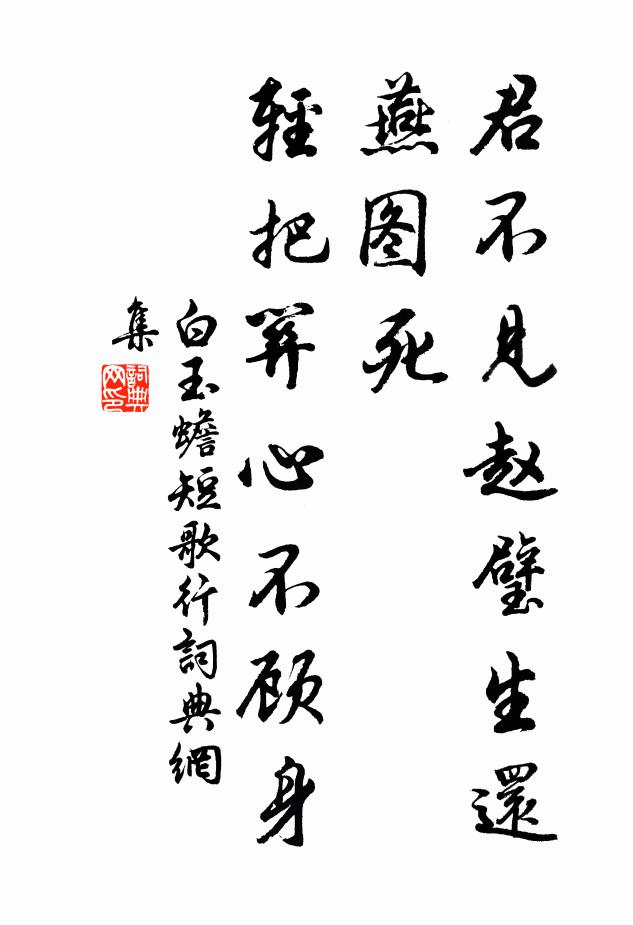 君不見赵璧生還
燕图死
輕把心不顾身
白玉蟾短歌行詞典網
集
詞典
网印